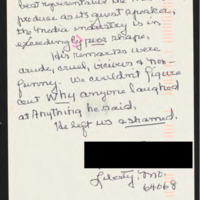 best representative the
produce as its guest speaker,
the media industry is in
exceedingly poor shape.
His remarks were
crude, cruel, vicious & non-
funny. We couldn't figure
out why anyone laughed
at anything he said.
He left us ashamed.
Liberty, Mo.
64068